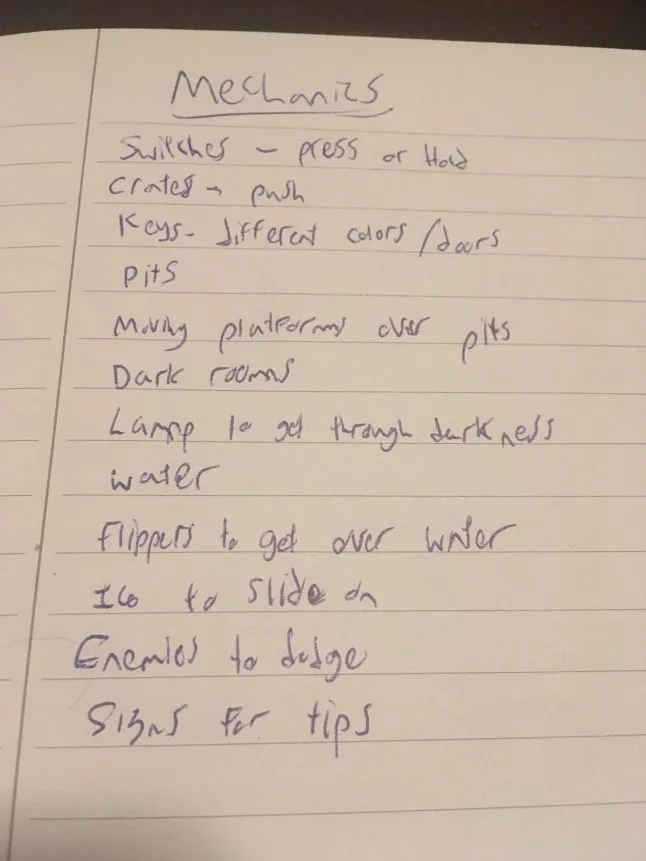 Mechanics
Switches - press or Hold
Crates - push
Keys - different colors/doors
pits
Moving platforms over pits
Dark rooms
Lamp to get through darkness
water
flippers to get over water
Ice to slide on
Enemies to dodge
Signs for tips